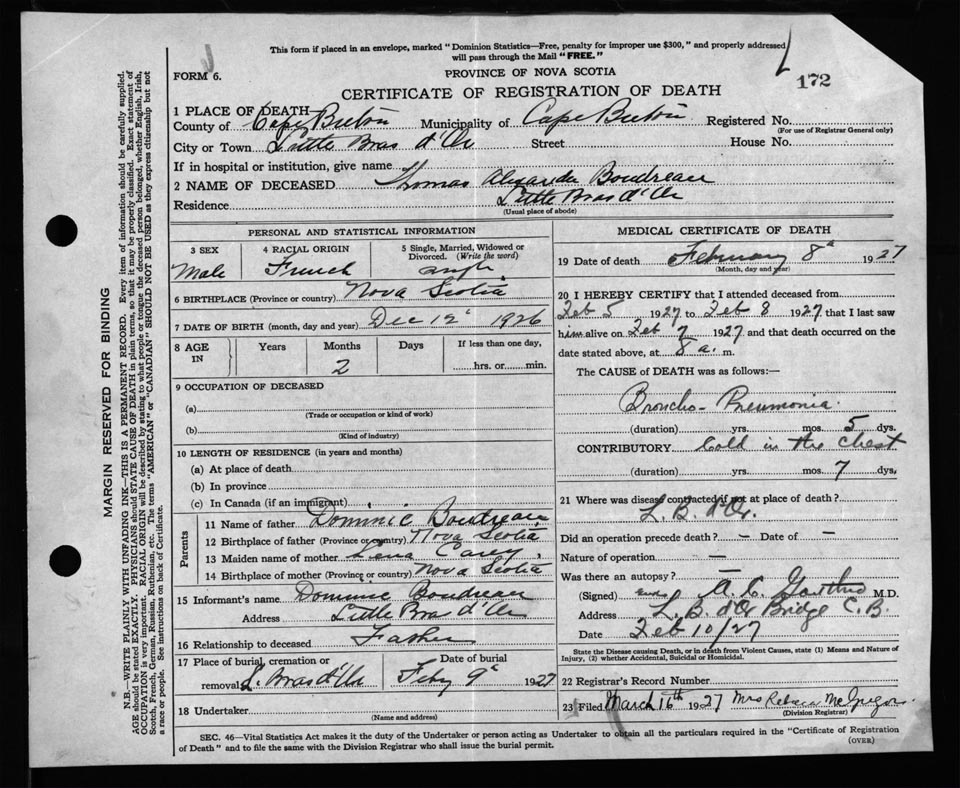 This form if placed in an envelope, marked "Dominion Statistics—Free, penalty for improper use $300," and properly addressed
will pass through the Mail "FREE."
172
FORM 6.
PROVINCE OF NOVA SCOTIA
CERTIFICATE OF REGISTRATION OF DEATH
1 PLACE OF DEATH
County of Cape Breton Municipality of Cape Breton Registered No.
(For use of Registrar General only)
City or Town Little Bras d'Or Street House No.
If in hospital or institution, give name
2 NAME OF DECEASED Thomas Alexander Boudreau
Residence Little Bras d'Or
(Usual place of abode)
PERSONAL AND STATISTICAL INFORMATION
3 SEX
Male
4 RACIAL ORIGIN
French
5 Single, Married, Widowed or
Divorced. (Write the word)
6 BIRTHPLACE (Province or country) Nova Scotia
7 DATE OF BIRTH (month, day and year) Dec 12 1926
8 AGE IN
Years
Months
2
Days
If less than one day,
hrs. or min.
9 OCCUPATION OF DECEASED
(a)
(Trade or occupation or kind of work)
(b)
(Kind of industry)
10 LENGTH OF RESIDENCE (in years and months)
(a) At place of death
(b) In province
(c) In Canada (if an immigrant)
Parents
11 Name of father Dominic Boudreau
12 Birthplace of father (Province or country) Nova Scotia
13 Maiden name of mother Lena Carey
14 Birthplace of mother (Province or country) Nova Scotia
15 Informant's name Dominic Boudreau
Address Little Bras d'Or
16 Relationship to deceased Father
17 Place of burial, cremation or
removal L. Bras d'Or
Date of burial
Feby 9 1927
18 Undertaker
(Name and address)
MEDICAL CERTIFICATE OF DEATH
19 Date of death February 8 1927
(Month, day and year)
20 I HEREBY CERTIFY that I attended deceased from
Feb 5 1927 to Feb 8 1927 that I last saw
him alive on Feb 7 1927 and that death occurred on the
date stated above, at 8 a. m.
The CAUSE of DEATH was as follows:—
Broncho-Pneumonia.
(duration) yrs. mos. 5 dys.
CONTRIBUTORY Cold in the chest
(duration) yrs. mos. 7 dys.
21 Where was disease contracted if not at place of death?
L. B. d'Or.
Did an operation precede death? — Date of —
Nature of operation —
Was there an autopsy? —
(Signed) A. C. M.D.
Address L. B. d'Or Bridge C. B.
Date Feb 10/27
State the Disease causing Death, or in death from Violent Causes, state (1) Means and Nature of
Injury, (2) whether Accidental, Suicidal or Homicidal.
22 Registrar's Record Number
23 Filed March 16th 1927 Mrs McGregor
(Division Registrar)
SEC. 46—Vital Statistics Act makes it the duty of the Undertaker or person acting as Undertaker to obtain all the particulars required in the "Certificate of Registration
of Death" and to file the same with the Division Registrar who shall issue the burial permit.
(OVER)
MARGIN RESERVED FOR BINDING
N.B.—WRITE PLAINLY WITH UNFADING INK—THIS IS A PERMANENT RECORD. Every item of information should be carefully supplied.
AGE should be stated EXACTLY. PHYSICIANS should STATE CAUSE OF DEATH in plain terms, so that it may be properly classified. Exact statement of
OCCUPATION is very important. RACIAL ORIGIN will be described by stating to what people or tongue the deceased person belonged, whether English, Irish,
Scotch, French, German, Russian, Ruthenian, etc. The terms "AMERICAN" or "CANADIAN" SHOULD NOT BE USED as they express citizenship but not
a race or people. See instructions on back of Certificate.